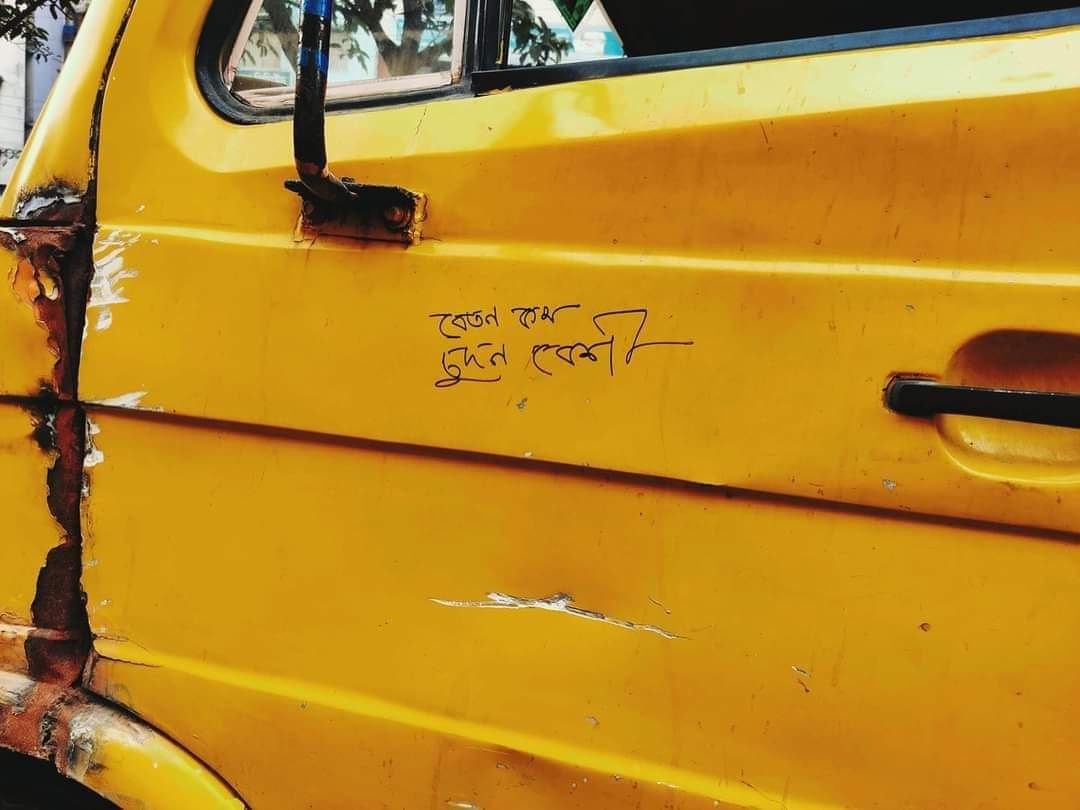 বেতন কম
চুদন বেশী